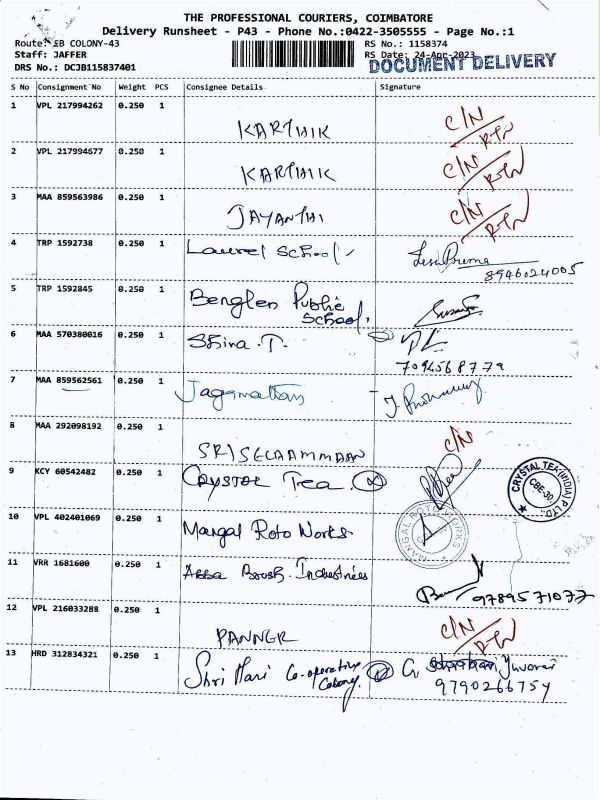 THE PROFESSIONAL COURIERS, COIMBATORE
Delivery Runsheet - P43 - Phone No.:0422-3505555 - Page No.:1
Route: EB COLONY-43 RS No.: 1158374
Staff: JAFFER RS Date: 24-Apr-2023
DRS No.: DCJB115837401 DOCUMENT DELIVERY
S No Consignment No Weight PCS Consignee Details Signature
1 VPL 217994262 0.250 1 KARTHIK C/N RTN
2 VPL 217994677 0.250 1 KARTHIK C/N RTN
3 MAA 859563986 0.250 1 JAYANTHI C/N RTN
4 TRP 1592738 0.250 1 Laurel School
8946024005
5 TRP 1592845 0.250 1 Benglen Public
School
6 MAA 570380016 0.250 1 Shiva. T.
7094568779
7 MAA 859562561 0.250 1 Jaganathan
8 MAA 292098192 0.250 1 C/N
SRISELAAMMAAN
9 KCY 60542482 0.250 1 Crystal Tea. CRYSTAL TEA (INDIA) P LTD. CBE-30
10 VPL 402401069 0.250 1 Mangal Roto Works MANGAL ROTO WORKS
11 VRR 1681600 0.250 1 Abba Brush. Industries
9789571077
12 VPL 216033288 0.250 1 PANNER C/N RTN
13 HRD 312834321 0.250 1 Shri Hari Co-operative
Colony. 9790266754